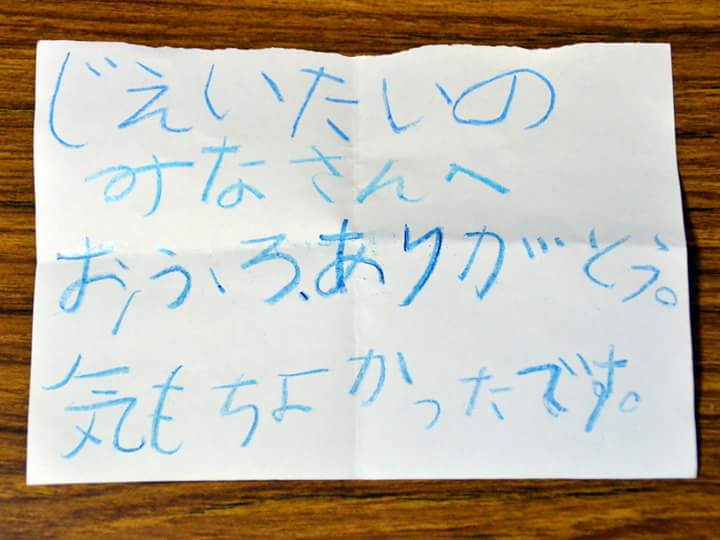 じえいたいの
みなさんへ
おふろ、ありがとう。
気もちよかったです。